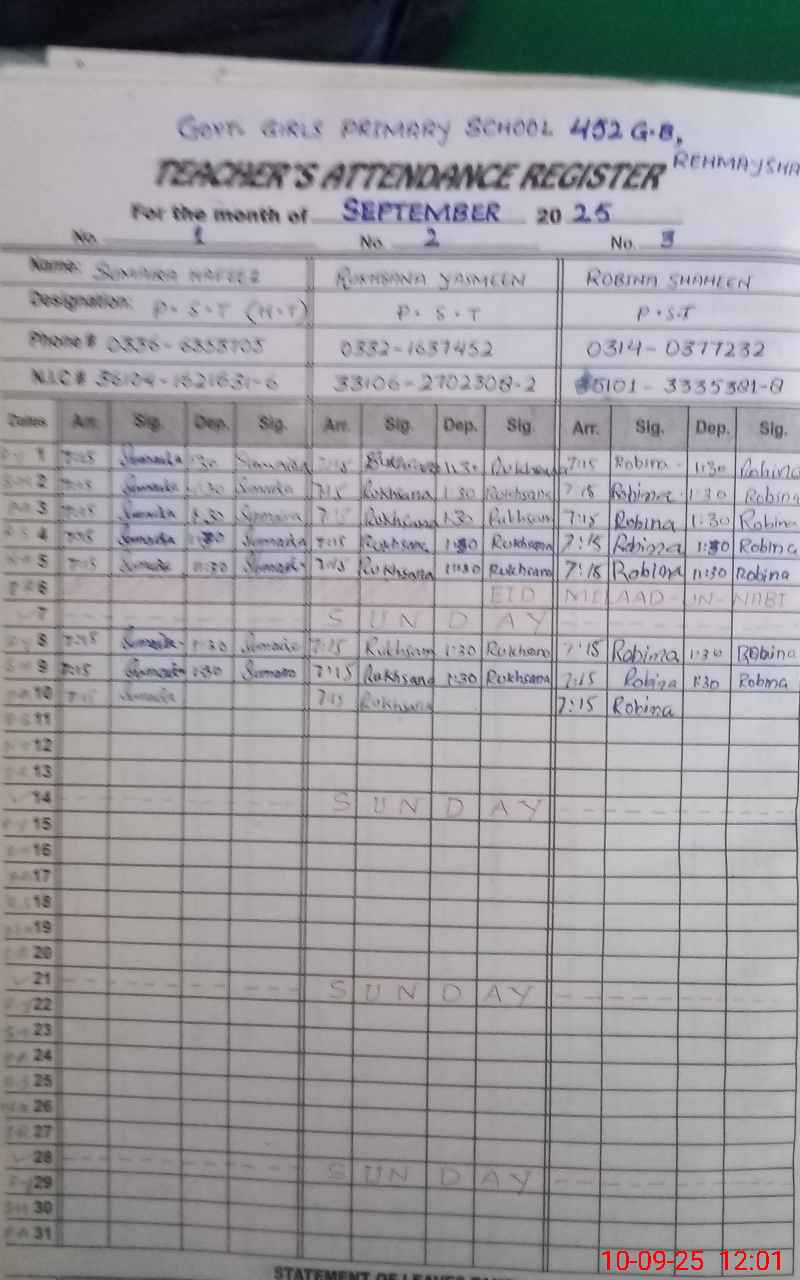 GOVT. GIRLS PRIMARY SCHOOL 452 G.B,
REHMAYSHA
TEACHER'S ATTENDANCE REGISTER
For the month of SEPTEMBER 20 25
No. 1 No. 2 No. 3
Name: SUMAIRA ROKHSANA YASMEEN ROBINA SHAHEEN
Designation: P.S.T (H.T) P.S.T P.S.T
Phone # 0336-6353703 0332-1637452 0314-0377232
N.I.C # 36104-1621631-6 33106-2702308-2 35101-3335381-8
Dates Arr. Sig. Dep. Sig. Arr. Sig. Dep. Sig. Arr. Sig. Dep. Sig.
1 7:15 Sumaira 1:30 Sumaira 7:15 Rukhsana 11:30 Rukhsana 7:15 Robina 1:30 Robina
2 7:15 Sumaira 1:30 Sumaira 7:15 Rukhsana 1:30 Rukhsana 7:15 Robina 1:30 Robina
3 7:15 Sumaira 1:30 Sumaira 7:15 Rukhsana 1:30 Rukhsana 7:15 Robina 1:30 Robina
4 7:15 Sumaira 1:30 Sumaira 7:15 Rukhsana 1:30 Rukhsana 7:15 Robina 1:30 Robina
5 7:15 Sumaira 11:30 Sumaira 7:15 Rukhsana 11:30 Rukhsana 7:15 Robina 11:30 Robina
6 EID MEELAAD-UN-NABI
7 SUNDAY
8 7:15 Sumaira 1:30 Sumaira 7:15 Rukhsana 1:30 Rukhsana 7:15 Robina 1:30 Robina
9 7:15 Sumaira 1:30 Sumaira 7:15 Rukhsana 1:30 Rukhsana 7:15 Robina 1:30 Robina
10 7:15 Sumaira 7:15 Rukhsana 7:15 Robina
11
12
13
14 SUNDAY
15
16
17
18
19
20
21 SUNDAY
22
23
24
25
26
27
28 SUNDAY
29
30
31
STATEMENT OF LEAVES
10-09-25 12:01